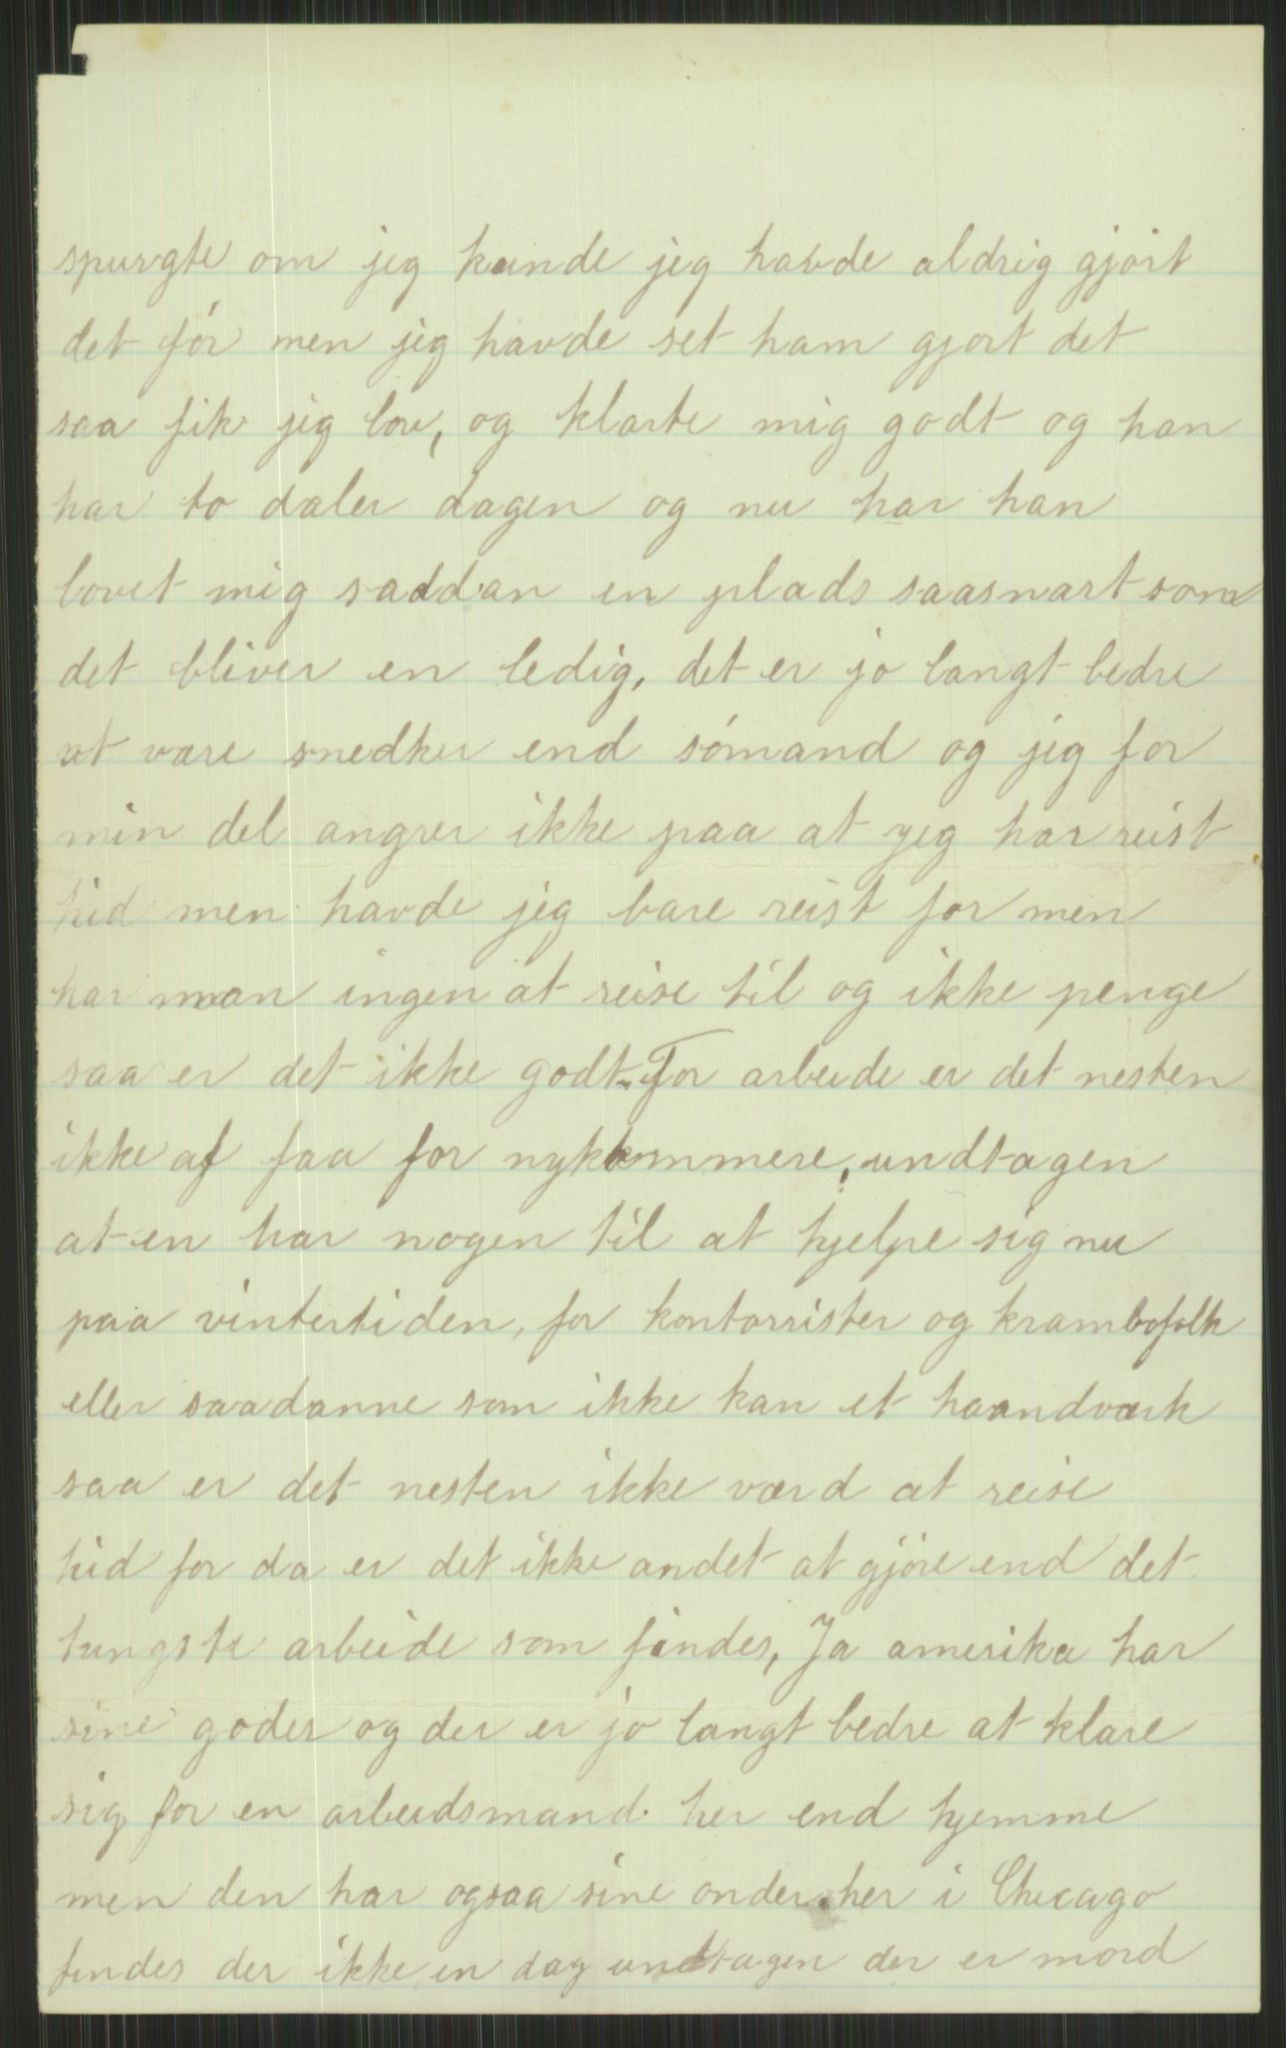 spurgte om jeg kunde jeg havde aldrig gjort
det før men jeg havde set ham gjort det
saa fik jeg lov, og klarte mig godt og han
har to daler dagen og nu har han
lovet mig saddan en plads saasnart som
det bliver en ledig, det er jo langt bedre
at være snedker end sømand og jeg for
min del angrer ikke paa at jeg har reist
hid men havde jeg bare reist før men
har man ingen at reise til og ikke penge
saa er det ikke godt. For arbeide er det nesten
ikke af faa for nykkommere, undtagen
at en har nogen til at hjelpe sig nu
paa vintertiden, for kontorrister og krambofolk
eller saadanne som ikke kan et haandværk
saa er det nesten ikke værd at reise
hid for da er det ikke andet at gjøre end det
tungste arbeide som findes, Ja amerika har
sine goder og der er jo langt bedre at klare
sig for en arbeidsmand her end hjemme
men den har ogsaa sine onder her i Chicago
findes der ikke en dag undtagen der er mord